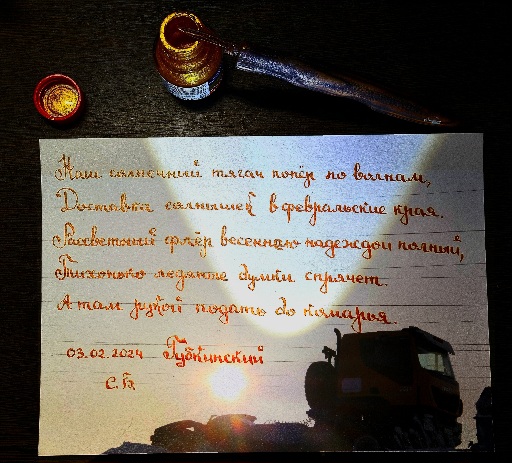 Наш солнечный тягач попёр по волнам,
Доставка солнышек в февральские края.
Рассветный флёр весеннею надеждой полный,
Тихонько ледяные думки спрячет.
А там рукой подать до комарья.
03.02.2024 Губкинский
С.Б.